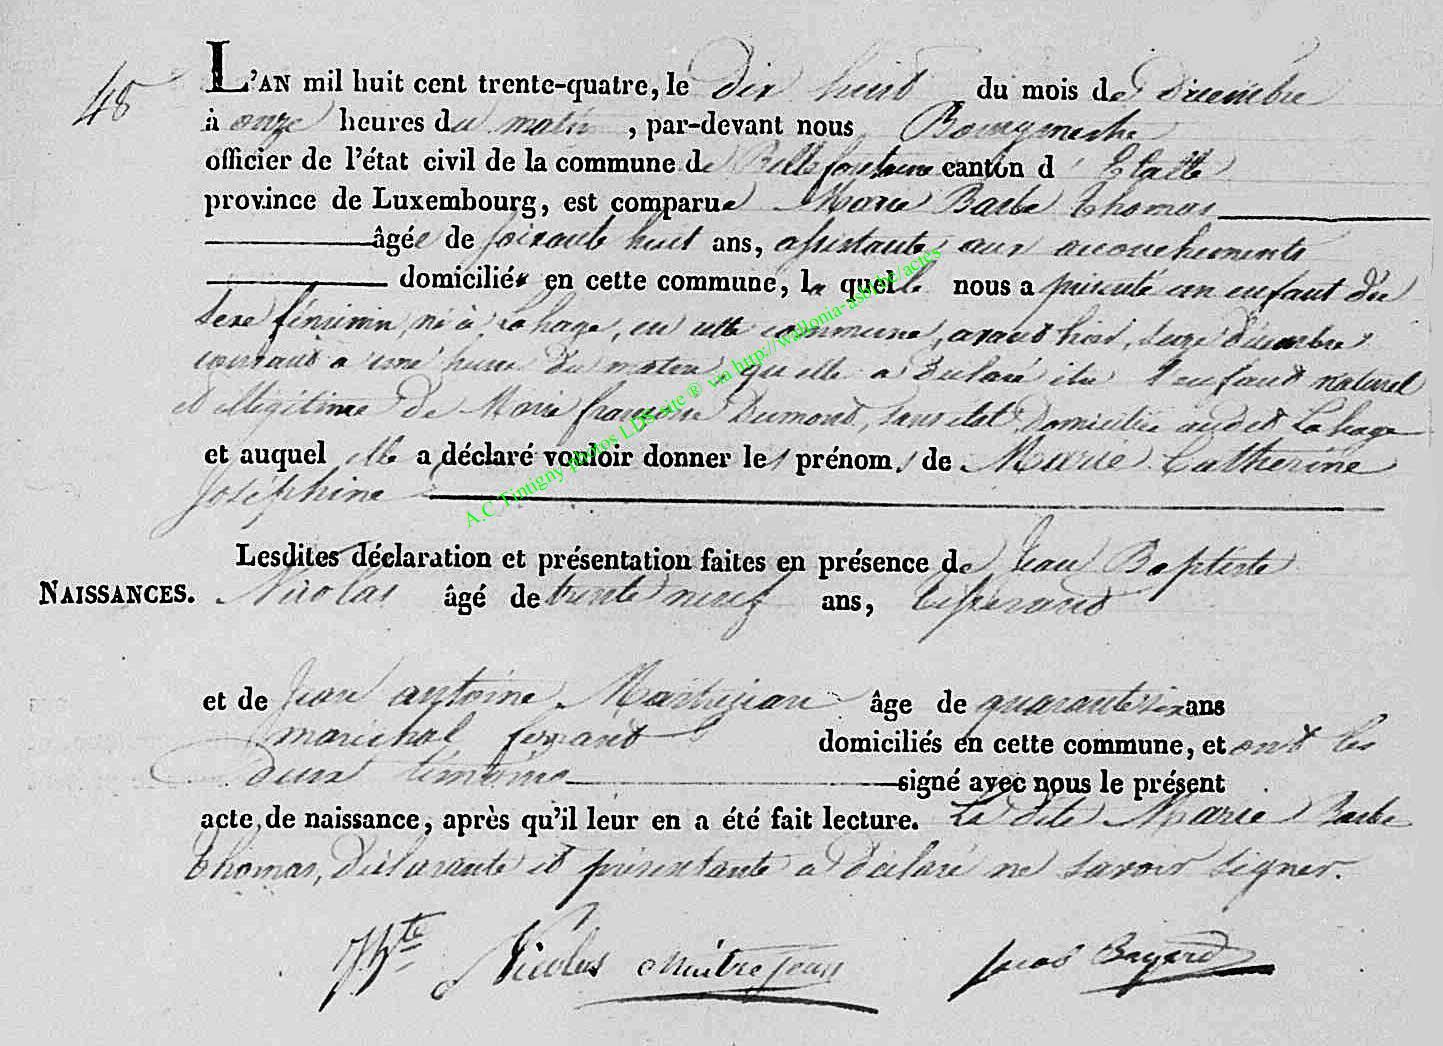 48
L'AN mil huit cent trente-quatre, le dix huit du mois de Décembre
à onze heures du matin, par-devant nous Bourgmestre
officier de l'état civil de la commune de Bellefontaine canton d' Etalle
province de Luxembourg, est comparue Marie Barbe Thomas
âgée de soixante huit ans, assistante aux accouchements
domiciliée en cette commune, laquelle nous a présenté un enfant du
sexe féminin, né à Lahage, en cette commune, avant hier, seize Décembre
courant à une heure du matin qu'elle a Déclaré être l'enfant naturel
et illégitime de Marie françoise Dumont, sans état Domiciliée audit Lahage
et auquel elle a déclaré vouloir donner les prénoms de Marie Catherine
Joséphine
Lesdites déclaration et présentation faites en présence de Jean Baptiste
NAISSANCES. Nicolas âgé de trente neuf ans, tisserand
et de Jean antoine Maitrejean âge de quarante six ans
maréchal ferrant domiciliés en cette commune, et ont les
deux témoins signé avec nous le présent
acte de naissance, après qu'il leur en a été fait lecture. La dite Marie Barbe
Thomas, Déclarante et présentante a Déclaré ne savoir signer.
Nicolas Maitrejean
A.C Tintigny photos LDS site ® via http://wallonia-asbl.be/actes